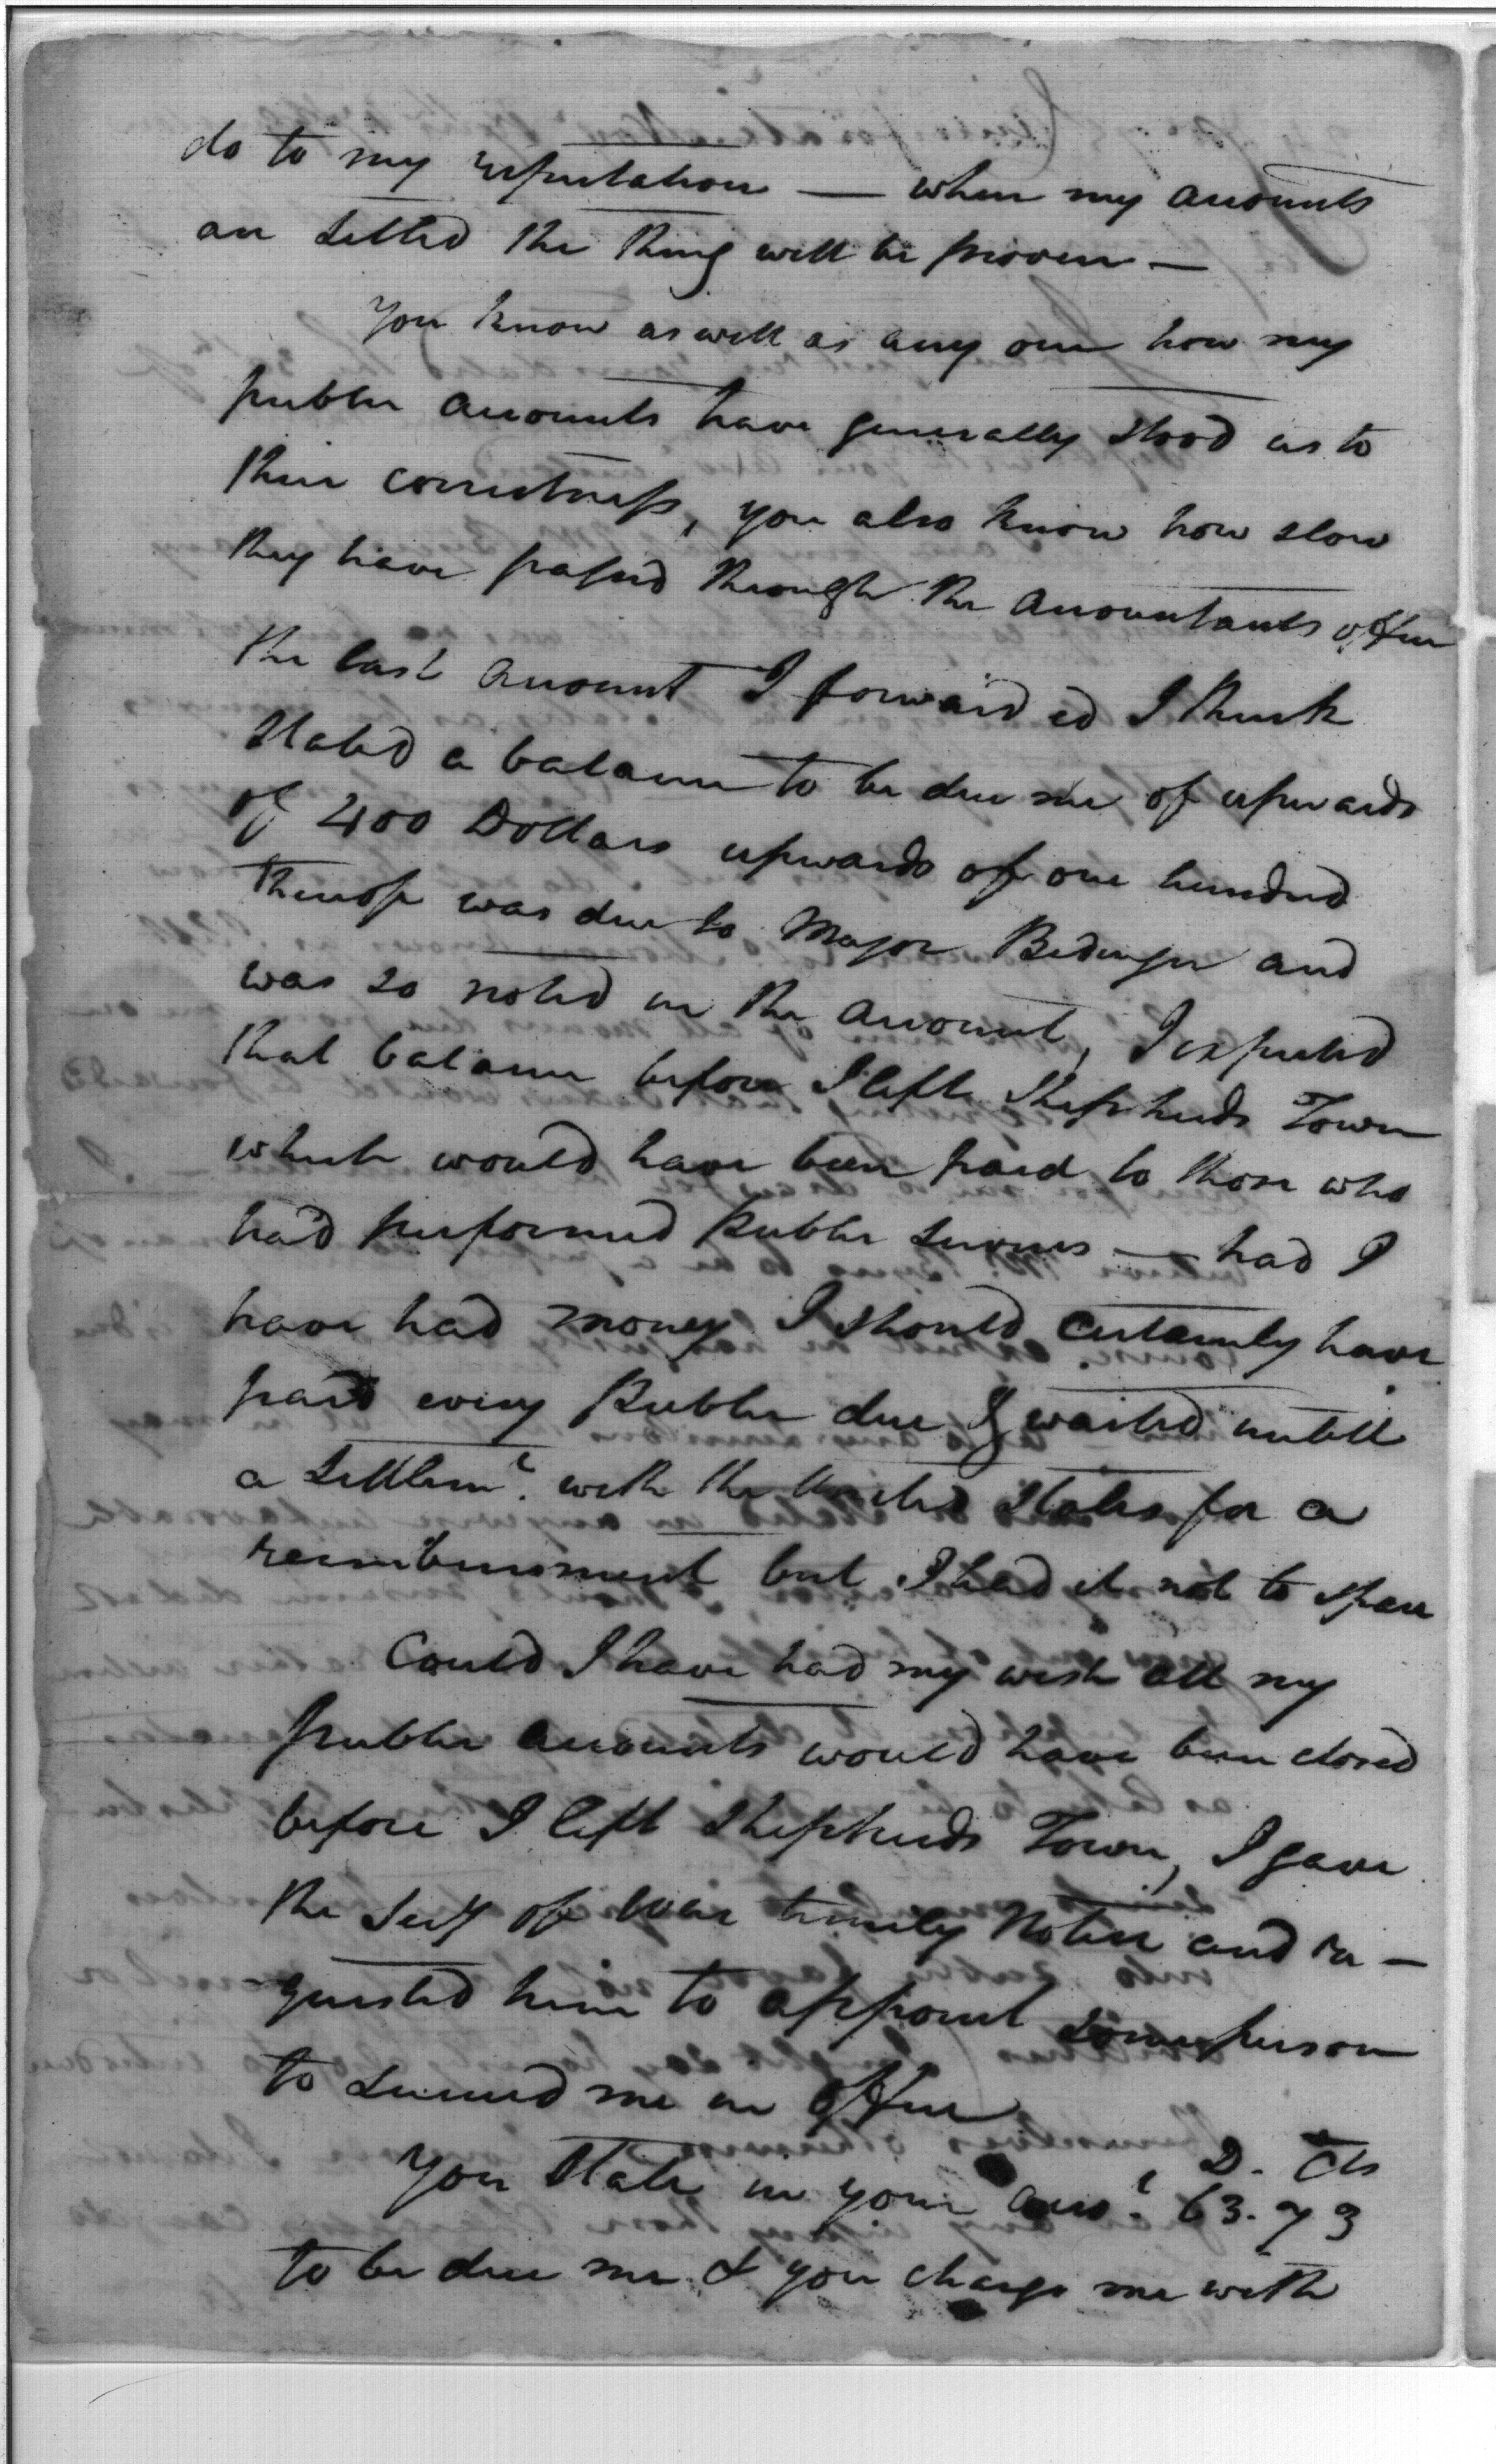 do to my reputation — when my accounts
are settled the thing will be proven —
You know as well as any one how my
public accounts have generally stood as to
their correctness, you also know how slow
they have passed through the Accountants office
the last account I forward ed I think
stated a balance to be due me of upwards
of 400 Dollars upwards of one hundred
thereof was due to Major Bedinger and
was so noted in the account, I expected
that balance before I left Shepherds Town
which would have been paid to those who
had performed Public services — had I
have had money I should certainly have
paid every Public due & waited untill
a settlemt. with the United States for a
reimbursment but I had it not to spare
Could I have had my wish all my
public accounts would have been closed
before I left Shepherds Town, I gave
the Secy of War timely Notice and re-
quested him to appoint some person
to succeed me in office
D. Cts
You state in your acct. 63.73
to be due me & you charge me with